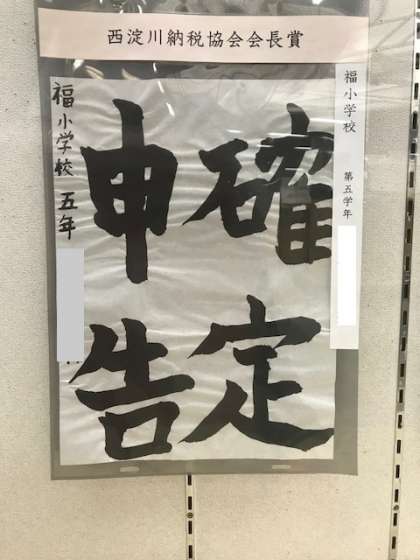 西淀川納税協会会長賞
福小学校 第五学年
確定
申告
福小学校 五年